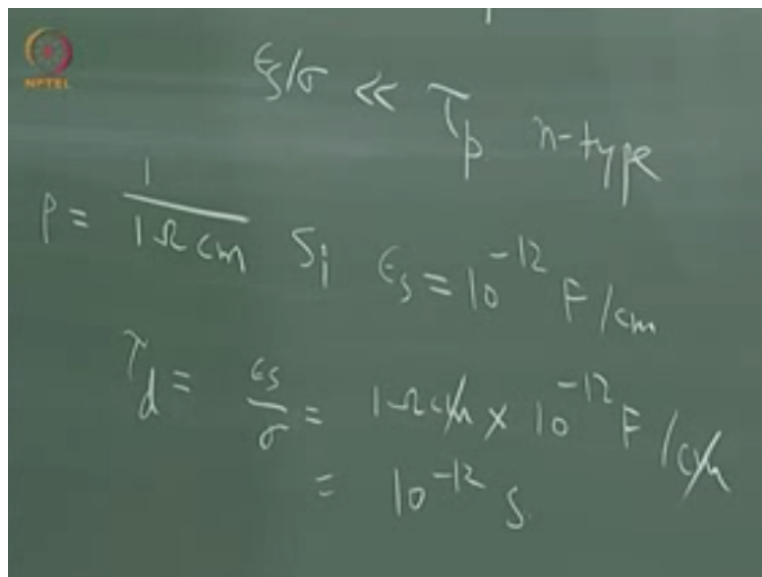 NPTEL
ϵs/σ << τp n-type
ρ = 1/1Ω cm Si ϵs = 10^-12 F/cm
τd = ϵs/σ = 1Ω cm × 10^-12 F/cm
= 10^-12 s